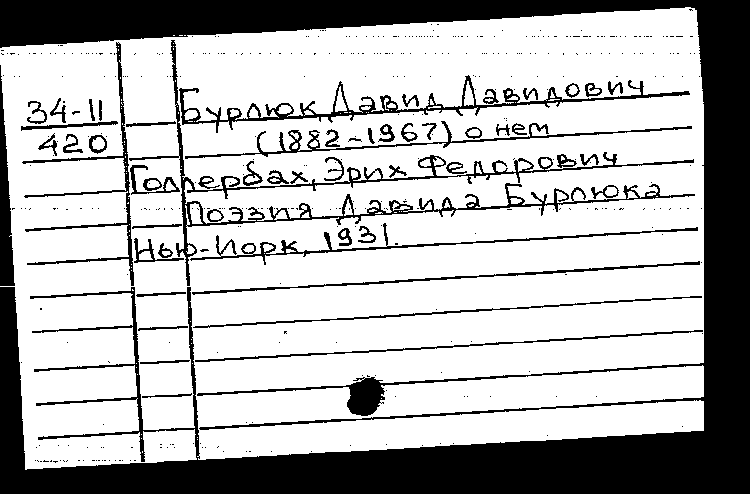 34-11 Бурлюк Давид Давидович
420 (1882-1967) о нем
Голлербах, Эрих Федорович
Поэзия Давида Бурлюка
Нью-Иорк, 1931.